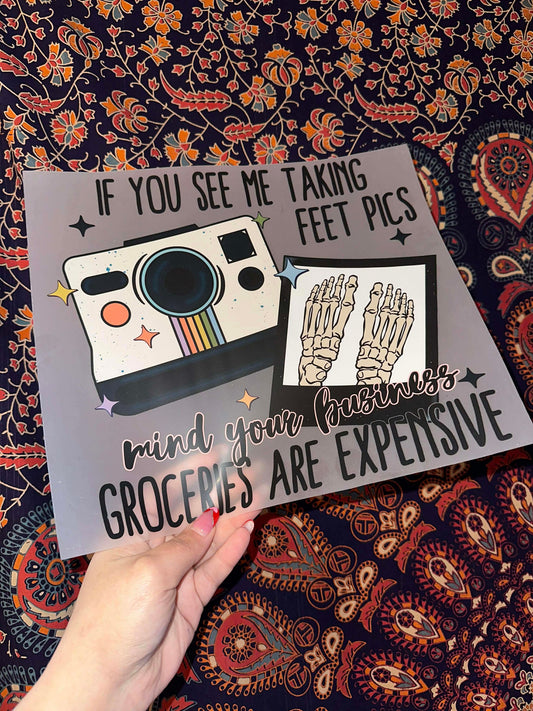 IF YOU SEE ME TAKING
FEET PICS
mind your business
GROCERIES ARE EXPENSIVE